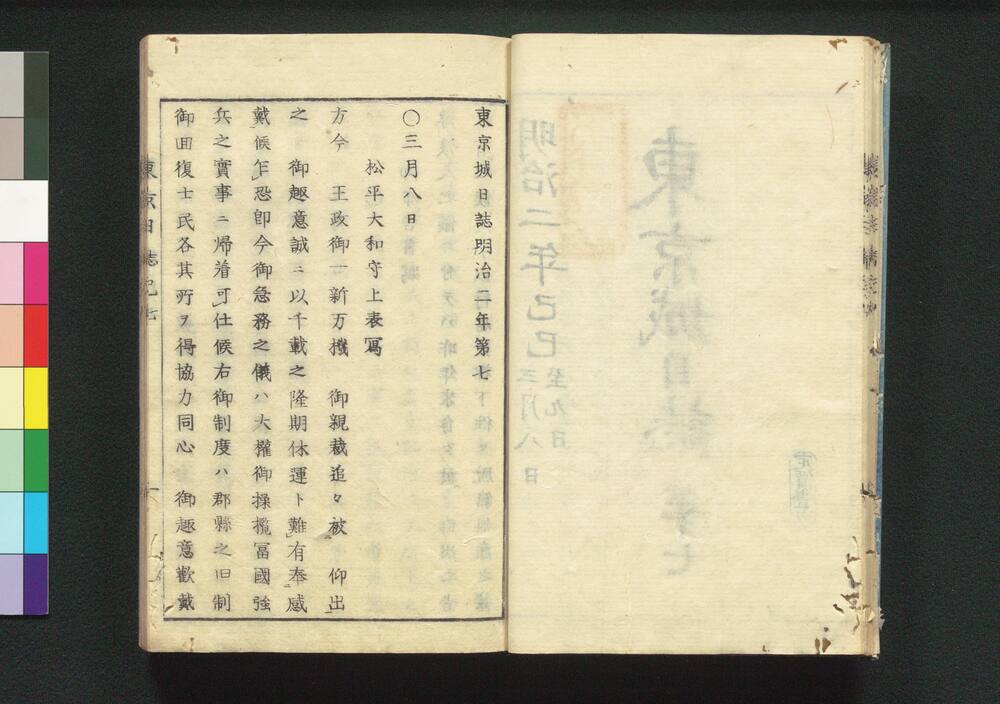 東京城日誌明治二年第七
〇三月八日
松平大和守上表冩
方今　王政御一新万機　御親裁追々被　仰出
之　御趣意誠ニ以千載之隆期休運ト難有奉感
戴候乍恐卽今御急務之儀ハ大權御操攬冨國強
兵之實事ニ帰着可仕候右御制度ハ郡縣之旧制
御回復士民各其所ヲ得協力同心　御趣意歡戴
東京日誌
東京城日誌　第七
明治二年己巳三月八日
至九日